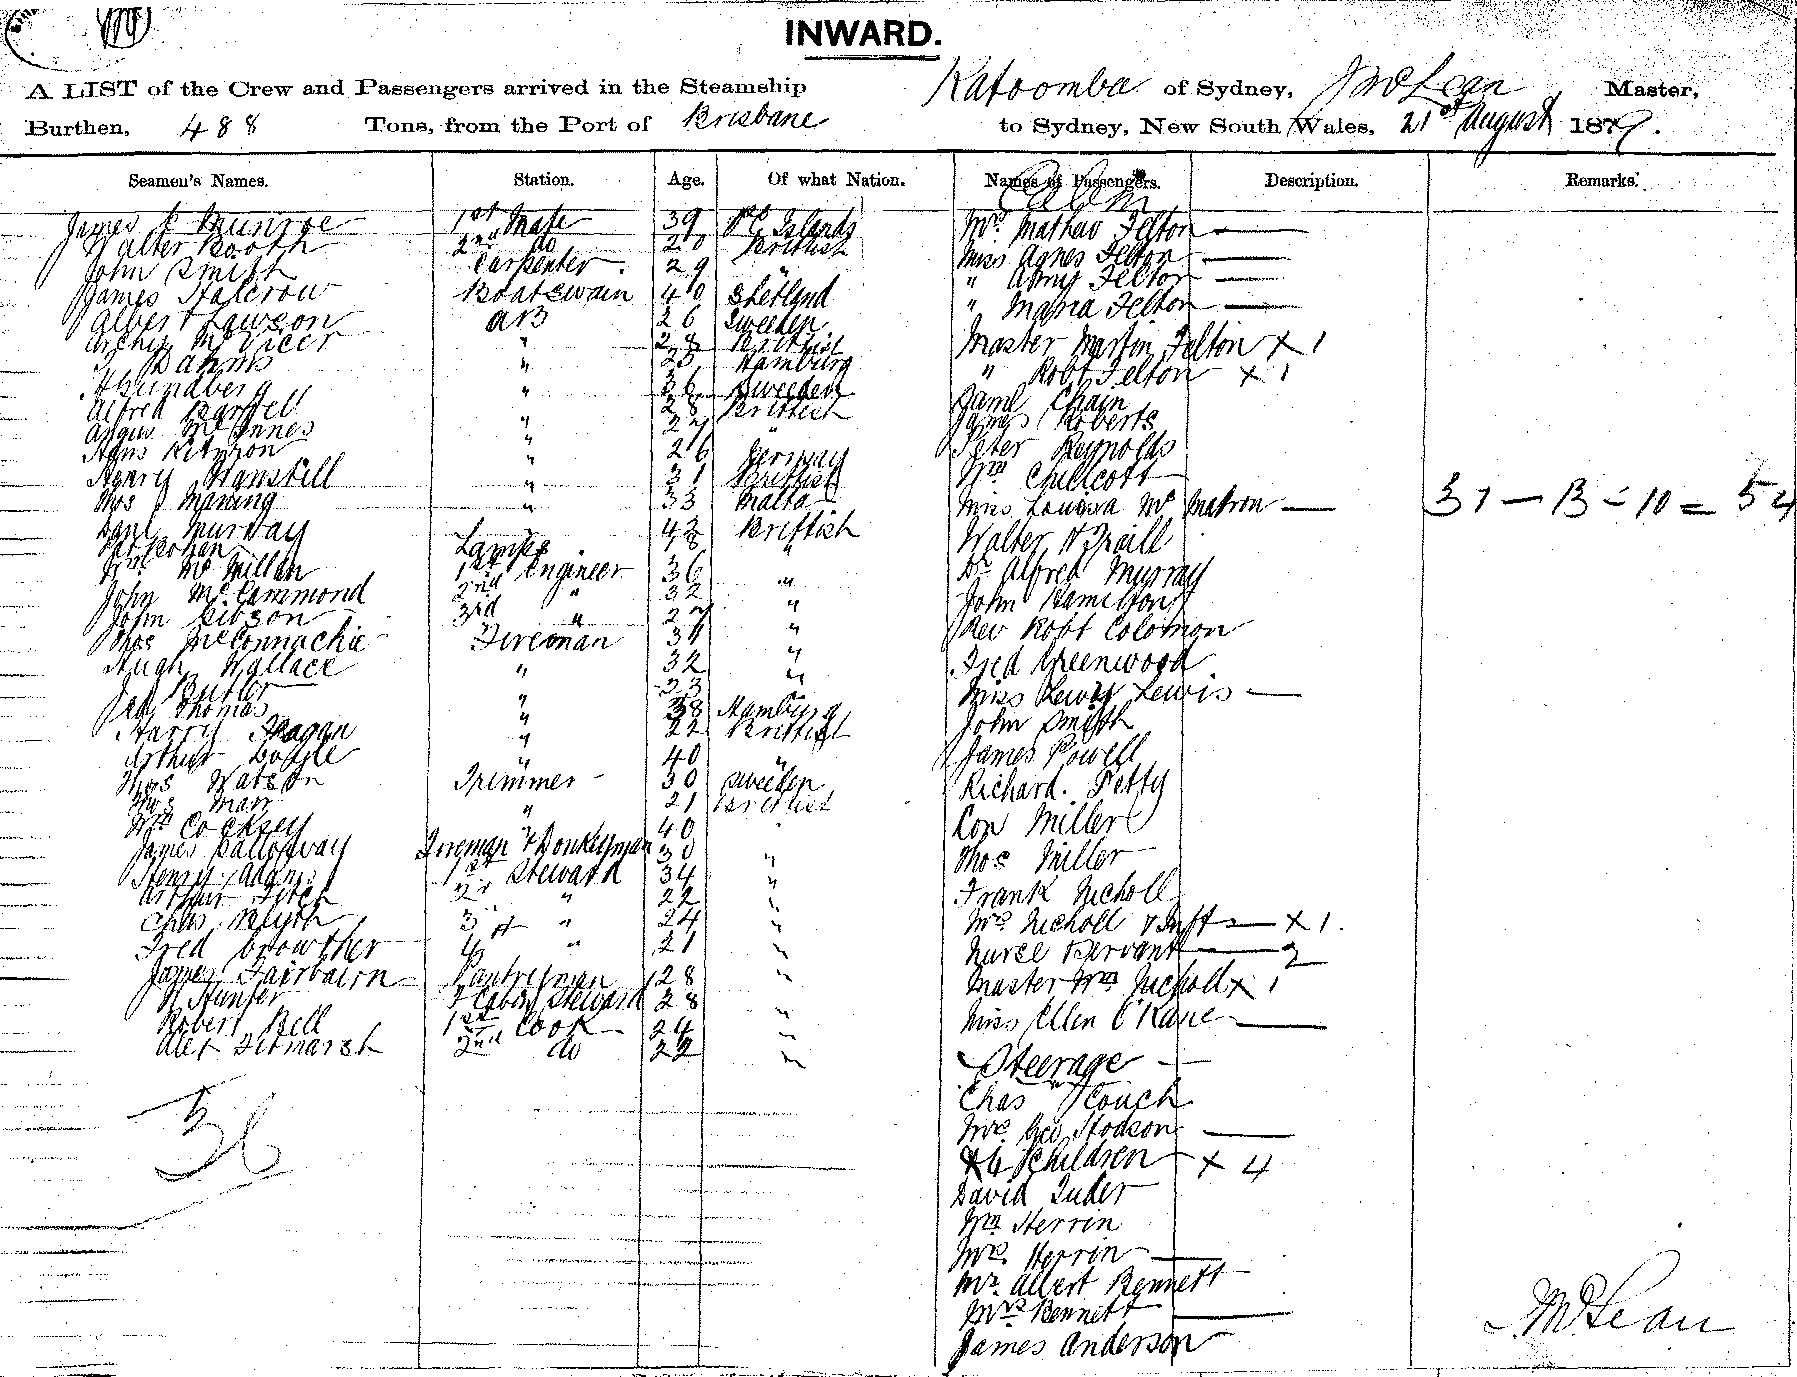 INWARD.
A LIST of the Crew and Passengers arrived in the Steamship Katoomba of Sydney, J McLean Master,
Burthen, 488 Tons, from the Port of Brisbane to Sydney, New South Wales, 21st August 1879.
Seamen's Names. Station. Age. Of what Nation. Names of Passengers. Description. Remarks.
Cabin
James Munroe 1st Mate 39 Islands
Walter Booth 2nd do 20 Brittish
John Smith Carpenter 29 "
James Halcrow Boatswain 40 Shetland
Albert Lawson AB 26 Sweeden
Archy McVicer " 28 Brittish
" Hamburg
A Lundberg " 36 Sweeden
Alfred " 28 Brittish
Angus McInnes " 27 "
Hans " 26
Henry " 31 Brittish
Thos Maning " 33 Malta
Danl Murray 43 Brittish
Lamps 18 "
Wm McMillan 1st Engineer 36 "
John McCammond 2nd " 32 "
John Gibson 3rd " 27 "
Thos McConnachie Fireman 31 "
Hugh Wallace " 32 "
Butler 33
Thomas " 38 Hamburg
Harry " 22 Brittish
Arthur " 40 "
Thos Watson Trimmer 30 Sweeden
Thos Marr " 21 Brittish
Wm Cocksey " 40
James Galloway Foreman & Donkeyman 30 "
Henry Adams 1st Steward 34 "
Arthur 2nd " 22 "
Chas Blyth 3rd " 24 "
Fred Crowther 4 " 21 "
James Fairbairn Pantreyman 28 "
Hunter F Cabin Steward 28
Robert Bell 1st Cook 24 "
Alex Titmarsh 2nd do 22 "
36
Mrs Mathew Felton —
Miss Agnes Felton —
" Amy Felton —
" Maria Felton —
Master Martin Felton x 1
" Robt Felton x 1
Saml Chain
James Roberts
Peter Reynolds
Wm Chillcott
Miss Louisa Mc Matron —
Walter
Dr Alfred Murray
John Hamilton
Rev Robt Colomon
Fred Greenwood
Miss Lewis —
John Smith
James Powell
Richard Petty
Con Miller
Thos Miller
Frank Nicholl
Mrs Nicholl & Inft — x 1.
Nurse Servant — 2
Master Wm Nicholl x 1
Miss Ellen O'Kane —
Steerage
Chas Couch
Mrs Geo Hodson —
4 Children x 4
David Tuder
Wm Herrin
Mrs Herrin —
Mr Albert Bennett
Mrs Bennett —
James Anderson
31 — 13 = 10 = 54
J McLean